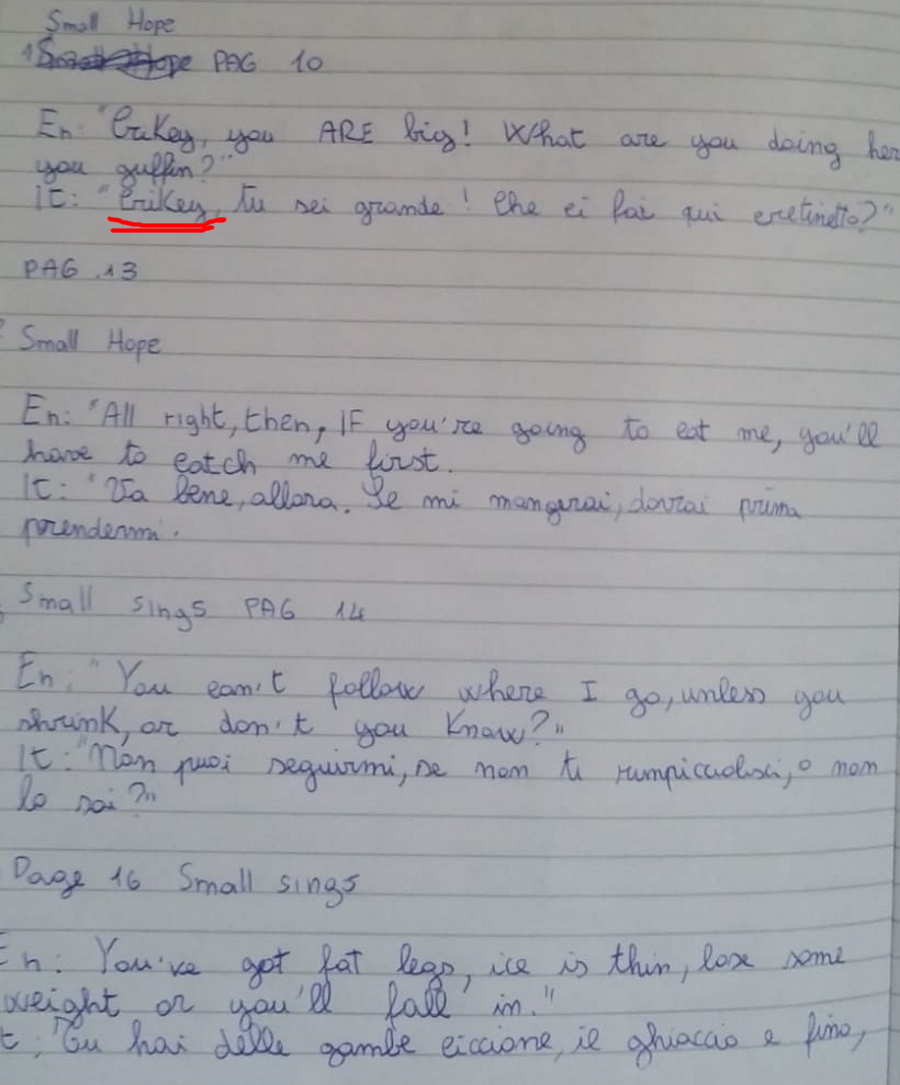 Small Hope
PAG 10
En: "Crikey, you ARE big! What are you doing her
you guffin?"
It: "Crikey, tu sei grande! Che ci fai qui cretinetto?"
PAG .13
Small Hope
En: "All right, then, IF you're going to eat me, you'll
have to catch me first.
It: "Va bene, allora. Se mi mangerai, dovrai prima
prendermi.
Small sings PAG 14
En: "You can't follow where I go, unless you
shrink, or don't you know?"
It: "Non puoi seguirmi, se non ti rimpicciolisci, o non
lo sai?"
Page 16 Small sings
En: You've got fat legs, ice is thin, lose some
weight or you'll fall in."
t: "Tu hai delle gambe ciccione, il ghiaccio e fino,